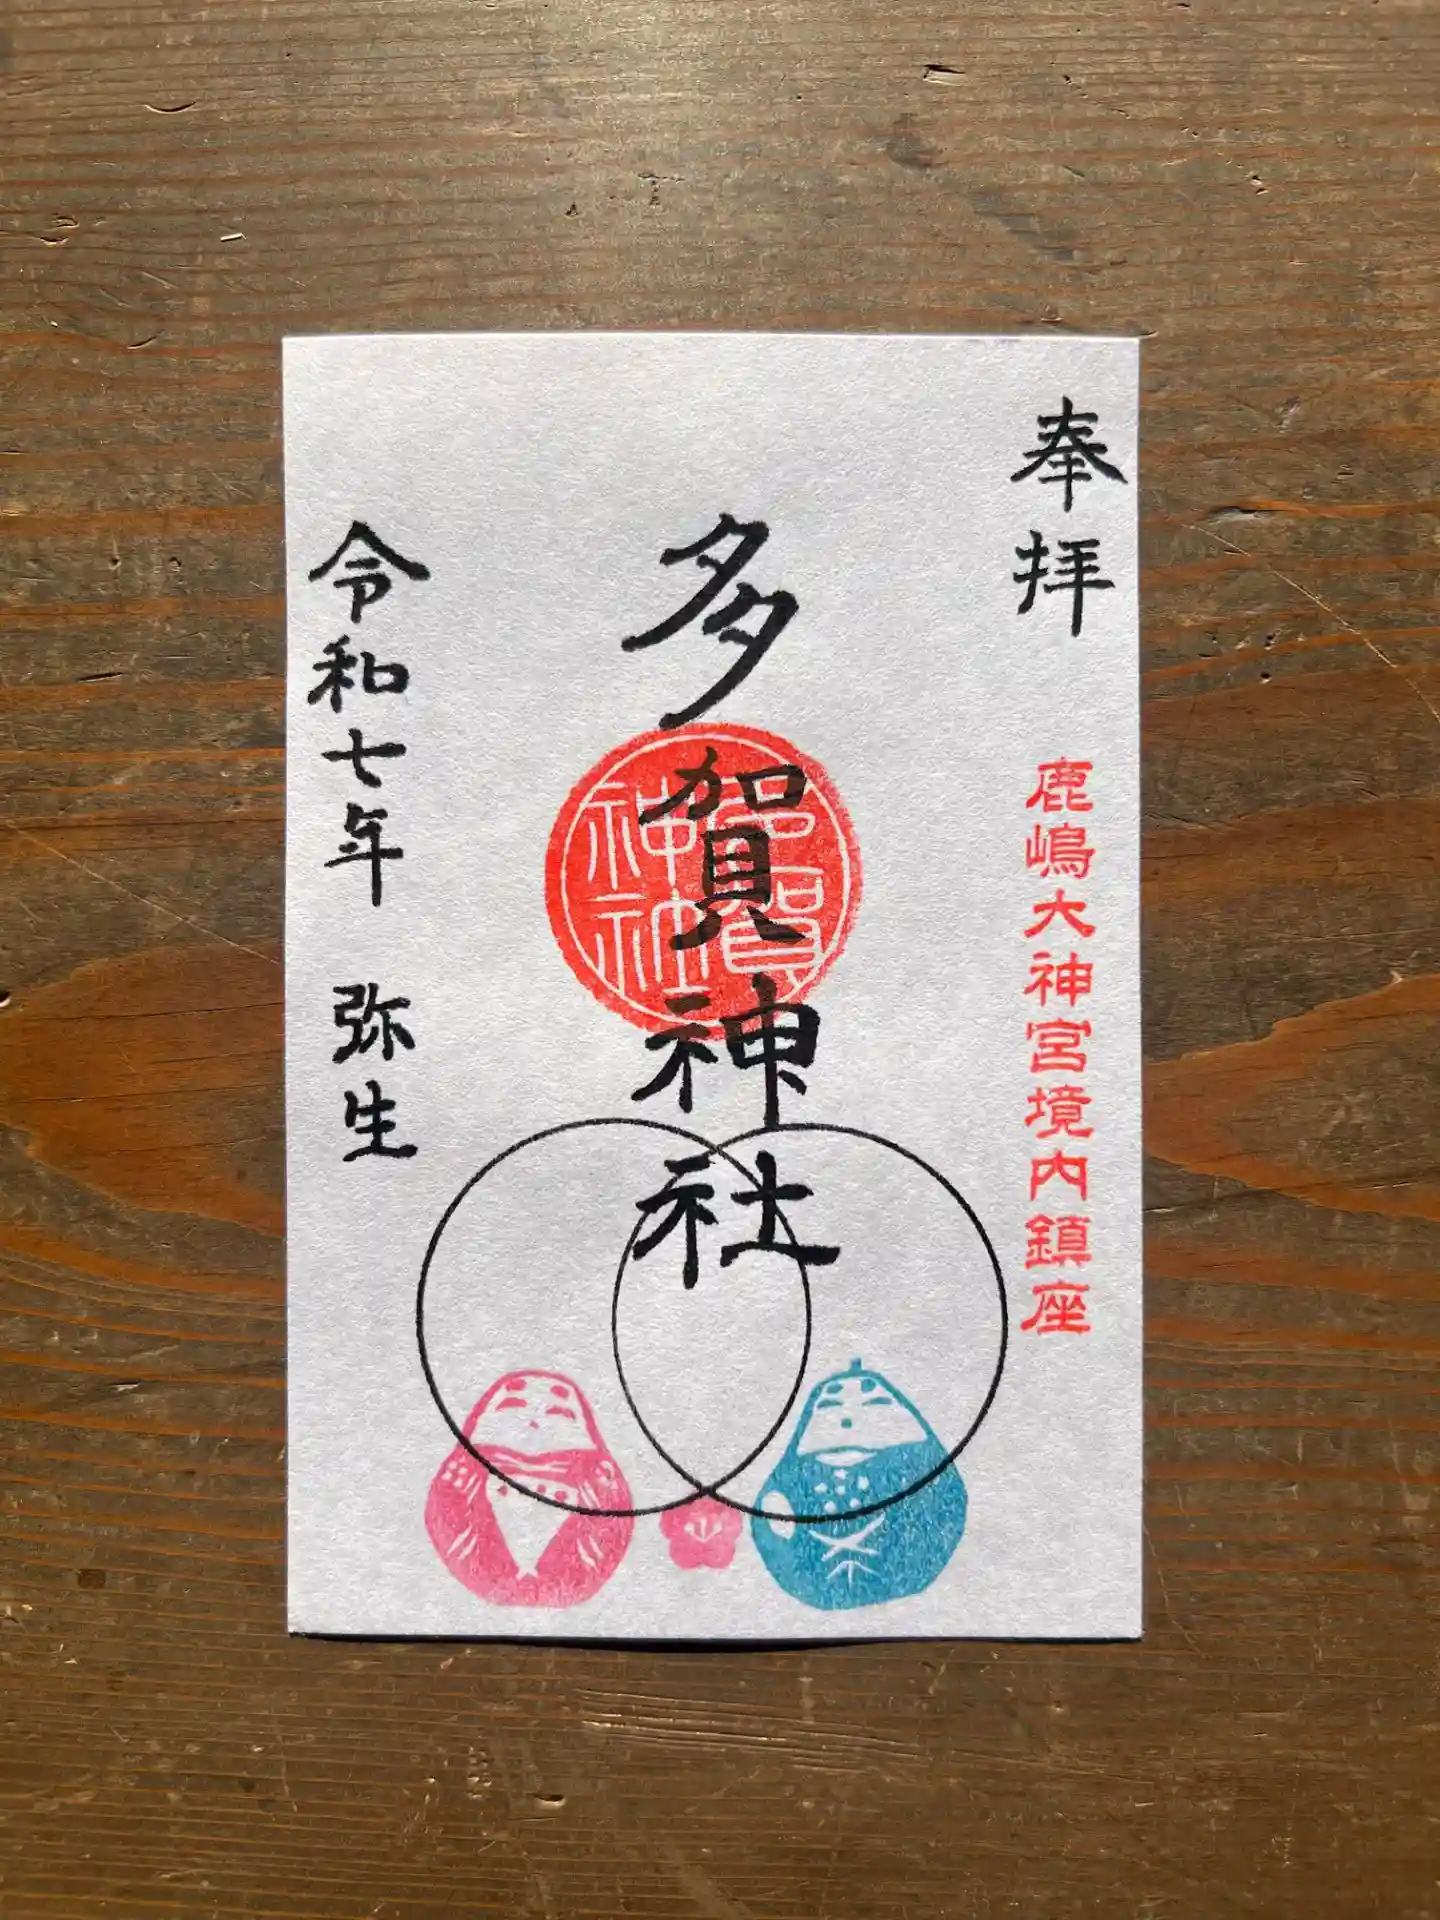 奉拝
鹿嶋大神宮境内鎮座
多賀神社
多賀神社
令和七年 弥生